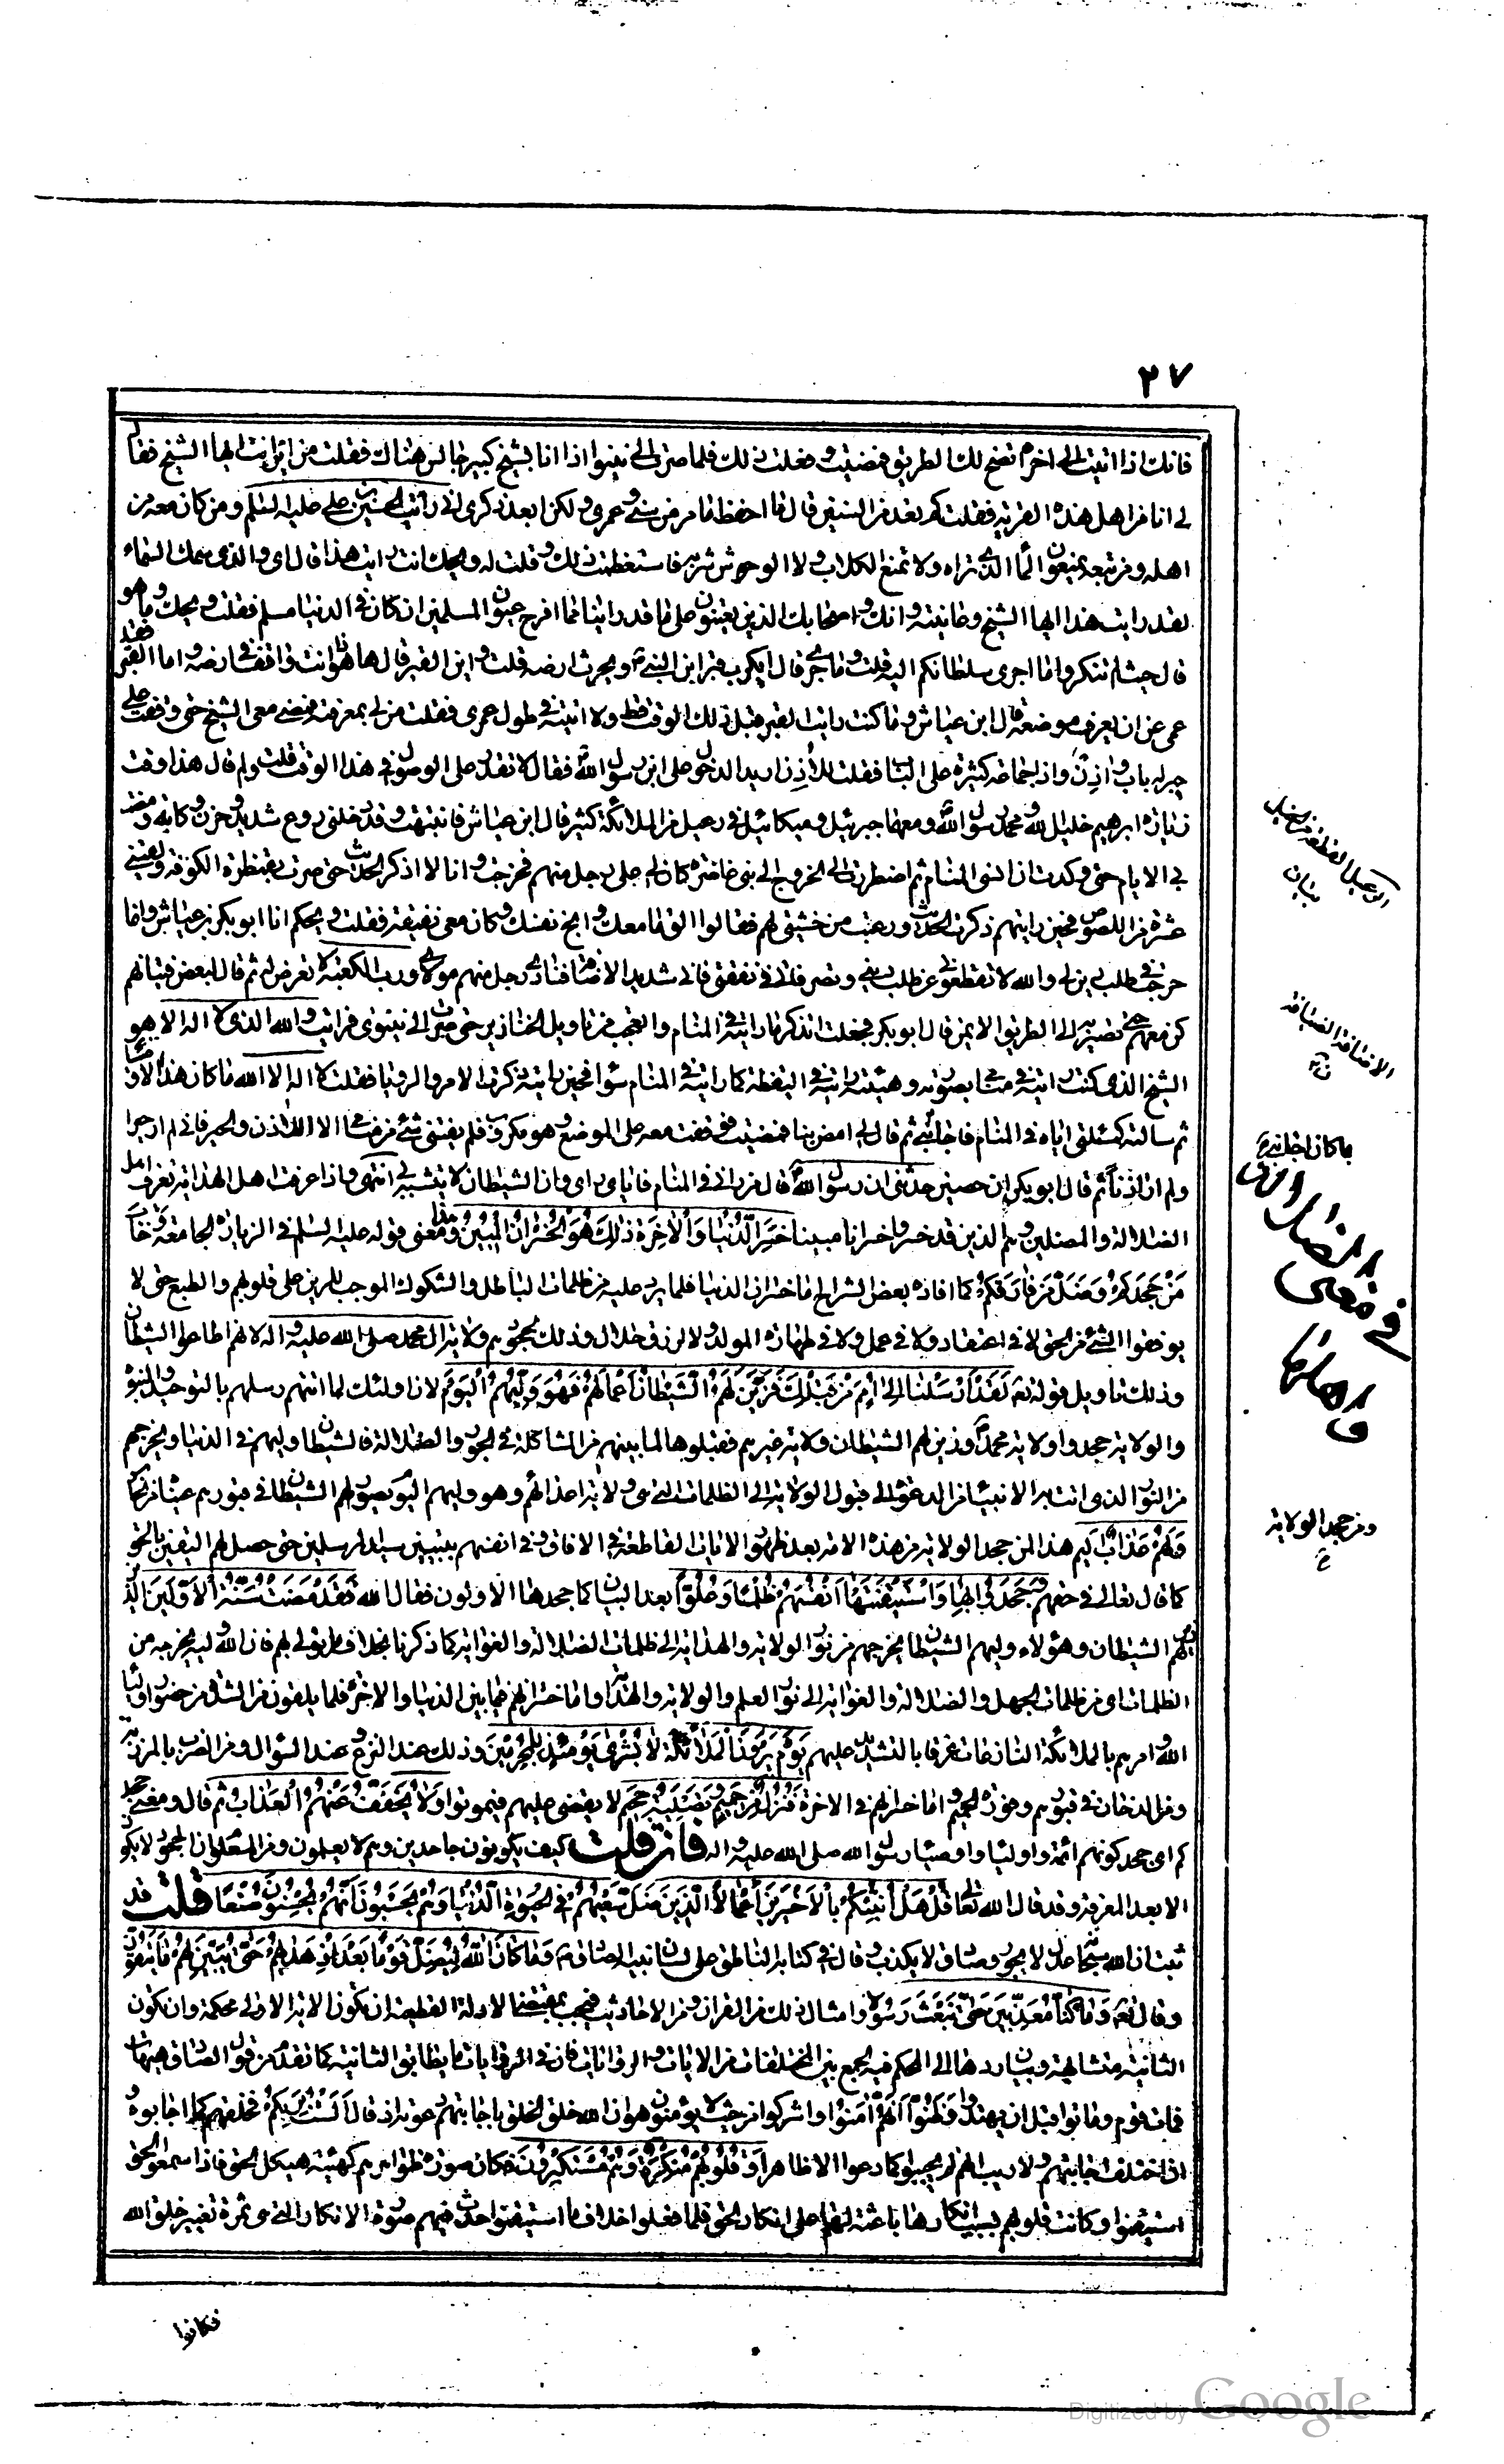 ٢٧
فانك اذا اتيت الى اخره تضح لك الطريق فمضيت و فعلت ذلك فلما صرت الى نينوا اذا انا بشيخ كبير جالس هناك فقلت من اين انت ايها الشيخ فقال
لى انا من اهل هذه القرية فقلت كم تعد من السنين قال ما احفظ ما مر من سنى و عمرى و لكن ابعد ذكرى انى رايت الحسين بن على عليه السلم ومن كان معه من
اهله و من تبعه يمنعون الماء الذى تراه ولا تمنع الكلاب ولا الوحوش شربه فاستفظعت ذلك و قلت له ويحك انت رايت هذا قال اى و الذى سمك السماء
لقد رايت هذا ايها الشيخ وعاينته وانك و اصحابك الذين يعينون على ما قد راينا مما اقرح عيون المسلمين ان كان فى الدنيا مسلم فقلت ويحك وما هو
قال حيث لم تنكروا ما اجرى سلطانكم اليه قلت وما جرى قال ايكرب قبر ابن النبى و يحرث ارضه قلت و اين القبر قال ها هو ذا انت واقف فى ارضه و اما القبر فقد
عمى عن ان يعرف موضعه قال ابن عياش وما كنت رايت القبر قبل ذلك الوقت قط ولا اتيته فى طول عمرى فقلت من لى بمعرفته فمضى معى الشيخ حتى وقف على
حير له باب و اذن واذا جماعة كثيرة على الباب فقلت للاذن اريد الدخول على ابن رسول الله فقال لا تقدر على الوصول فى هذا الوقت قلت ولم قال هذا وقت
زيارة ابرهيم خليل الله و محمد رسول الله ومعهما جبرئيل و ميكائيل فى رعيل من الملائكة كثير قال ابن عياش فانتبهت و قد دخلنى روع شديد و حزن و كابة و مضت
بى الايام حتى كدت ان انسى المنام ثم اضطررت الى الخروج الى بنى غاضرة لدين كان لى على رجل منهم فخرجت و انا لا اذكر الحديث حتى صرت بقنطرة الكوفة و لقينى
عشرة من اللصوص فحين رايتهم ذكرت الحديث و رعبت من خشيتى لهم فقالوا الق ما معك و انج نفسك و كان معى نفيقة فقلت ويحكم انا ابو بكر بن عياش و انما
خرجت فى طلب دين لى والله لا تقطعونى عن طلب دينى وتضرونى فى نفقتى فانى شديد الاضاقة فنادى رجل منهم مولاى و رب الكعبة لا يعرض له ثم قال لبعض فتيانهم
كن معهم حتى تصير به الى الطريق الايمن قال ابو بكر فجعلت اتذكر ما رايته فى المنام و اتعجب من تاويل الخنازير حتى صرت الى نينوى فرايت والله الذى لا اله الا هو
الشيخ الذى كنت رايته فى منامى بصورته و هيئته رايته فى اليقظة كما رايته فى المنام سواء فحين رايته ذكرت الامر و الرؤيا فقلت لا اله الا الله ما كان هذا الا وحيا
ثم سالته كمسئلتى اياه فى المنام فاجابنى ثم قال لى امض بنا فمضيت فوقفت معه على الموضع و هو مكروب فلم يفتنى شئ من منامى الا الاذن و الحير فانى لم ار حيرا
ولم ار اذنا ثم قال ابو بكر ان ابا حصين حدثنى ان رسول الله قال من رانى فى المنام فاياى راى فان الشيطان لا يتشبه بى انتهى و اذا عرفت اهل الهداية تعرف اهل
الضلالة و المضلين و هم الذين قد خسروا خسرانا مبينا خَسِرَ الدُّنْيا وَالْاخِرَةَ ذلِكَ هُوَ الْخُسْرانُ الْمُبينُ و هذا معنى قوله عليه السلم فى الزيارة الجامعة و خاب
مَنْ جَحَدَكُمْ وَ ضَلَّ مَنْ فارَقَكُمْ كما افاده بعض الشراح اما خسران الدنيا فلما يرد عليه من ظلمات الباطل و الشكوك الموجب للرين على قلوبهم و الطبع حتى لا
يوفقوا لشئ من الحق لا فى اعتقاد ولا فى عمل ولا فى طهارة المولد ولا لرزق حلال و ذلك لجحودهم ولاية ال محمد صلى الله عليه و اله لانهم اطاعوا الشيطان
وذلك تاويل قوله تع لَقَدْ اَرْسَلْنا اِلى اُمَمٍ مِنْ قَبْلِكَ فَزَيَّنَ لَهُمُ الشَّيْطانُ اَعْمالَهُمْ فَهُوَ وَلِيُّهُمُ الْيَوْمَ لان اولئك لما اتتهم رسلهم بالتوحيد و النبوة
و الولاية جحدوا ولاية محمد و زين لهم الشيطان ولاية غيرهم فقبلوها لما بينهم من المشاكلة فى الجحود و الضلالة فالشيطان وليهم فى الدنيا و يخرجهم
من النور الذى اتت به الانبياء من الدعوة الى قبول الولاية الى الظلمات التى هى ولاية اعدائهم و هو وليهم اليوم يصور لهم الشيطان فى قبورهم
وَلَهُمْ عَذابٌ اَليمٌ هذا لمن جحد الولاية من هذه الامة بعد ظهور الايات القاطعة فى الافاق و فى انفسهم بتبيين سيد المرسلين حتى حصل لهم اليقين بالحق
كما قال تعالى فى حقهم وَ جَحَدُوا بِها وَاسْتَيْقَنَتْها اَنْفُسُهُمْ ظُلْمًا وَ عُلُوًّا بعد البيان كما جحدها الاولون فقال الله فَقَدْ مَضَتْ سُنَّةُ الْاَوَّلينَ الذين
لهم الشيطان و هؤلاء وليهم الشيطان يخرجهم من نور الولاية و الهداية الى ظلمات الضلالة و الغواية كما ذكرنا بخلاف من تولى لهم فان الله وليه يخرجه من
الظلمات اى من ظلمات الجهل و الضلالة و الغواية الى نور العلم و الولاية و الهداية و اما خسرانهم فيما بين الدنيا والاخرة فلما يلقون من الشدة من حضور اولياء
الله و امرهم بالملائكة النازعات غرقا بالتشديد عليهم يَوْمَ يَرَوْنَ الْمَلائِكَةَ لا بُشْرى يَوْمَئِذٍ لِلْمُجْرِمينَ وذلك عند النزع و عند السؤال و من الضرب بالمرزبة
و من الدخان فى قبورهم و حرة الجحيم و اما خسرانهم فى الاخرة فَنُزُلٌ مِنْ حَميمٍ وَ تَصْلِيَةُ جَحيمٍ لا يقضى عليهم فيموتوا وَلا يُخَفَّفُ عَنْهُمُ الْعَذابُ ثم قال و معنى جحد
كم اى جحد كونهم ائمة و اولياء و اوصياء رسول الله صلى الله عليه و اله فان قلت كيف يكونون جاحدين و هم لا يعلمون و من المعلوم ان الجحود لا يكون
الا بعد المعرفة و قد قال الله تعالى قُلْ هَلْ اُنَبِّئُكُمْ بِالْاَخْسَرينَ اَعْمالًا اَلَّذينَ ضَلَّ سَعْيُهُمْ فِى الْحَيوةِ الدُّنْيا وَ هُمْ يَحْسَبُونَ اَنَّهُمْ يُحْسِنُونَ صُنْعًا قلت قد
ثبت ان الله سبحانه عدل لا يجور و صادق لا يكذب قال فى كتابه الناطق على لسان نبيه الصادق وَ ما كانَ اللهُ لِيُضِلَّ قَوْمًا بَعْدَ اِذْ هَديهُمْ حَتّى يُبَيِّنَ لَهُمْ ما يَتَّقُونَ
و قال تع وَ ما كُنّا مُعَذِّبينَ حَتّى نَبْعَثَ رَسُولًا و امثال ذلك من القران و من الاحاديث فيجب بمقتضى الادلة القطعية ان تكون الاية الاولى محكمة و ان تكون
الثانية متشابهة و بيان ردها الى المحكم فيه الجمع بين المختلفات من الايات و الروايات فان فى الروايات ما يطابق الثانية كما تقدم من قول الصادق هيهات
فات قوم و ماتوا قبل ان يهتدوا وَ ظَنُّوا اَنَّهُمْ امَنُوا و اشركوا من حيث لا يؤمنون هو ان الله خلق الخلق باجابتهم دعوته اذ قال اَلَسْتُ بِرَبِّكُمْ فخلقهم كما اجابوه
اذ اختلف اجابتهم و لا ريب انهم لم يجيبوا كما دعوا الا ظاهرا وَ قُلُوبُهُمْ مُنْكِرَةٌ وَ هُمْ مُسْتَكْبِرُونَ فكان صورة ظواهرهم كهيئة هيكل الحق فاذا سمعوا الحق
استيقنوا و كانت قلوبهم بسبب انكارها باعثة لهم على انكار الحق فلما فعلوا خلاف ما استيقنوا حدث فيهم صورة الانكار التى هى ثمرة تغيير خلق الله
فكانوا
الرعيل القطعة من الخيل
الاضاقة الضيافة
فى معنى الضلالة
و اهلها
و من جحد الولاية
Digitized by Google